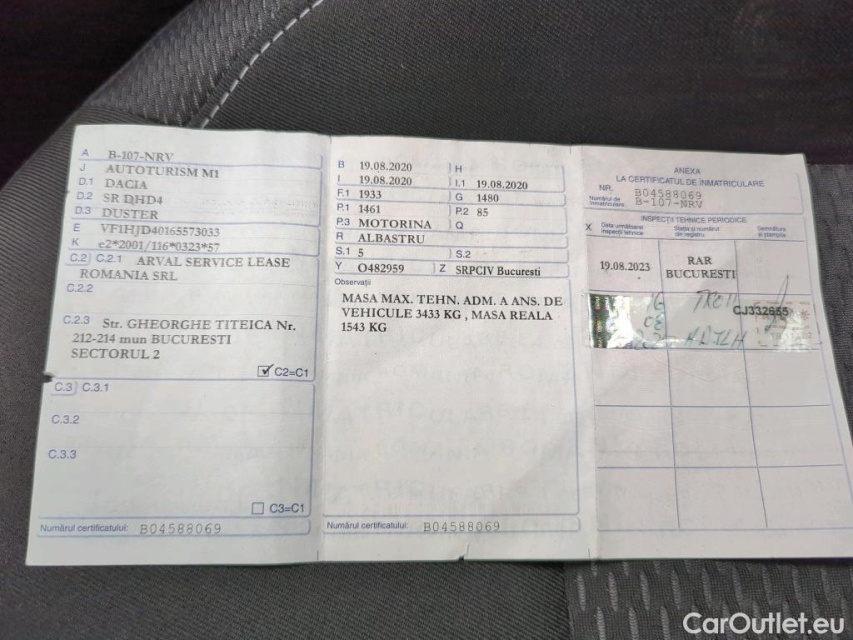 A B-107-NRV
J AUTOTURISM M1
D.1 DACIA
D.2 SR DHD4
D.3 DUSTER
E VF1HJD40165573033
K e2*2001/116*0323*57
C.2 C.2.1 ARVAL SERVICE LEASE
ROMANIA SRL
C.2.2
C.2.3 Str. GHEORGHE TITEICA Nr.
212-214 mun BUCURESTI
SECTORUL 2
C2=C1
C.3 C.3.1
C.3.2
C.3.3
C3=C1
Numărul certificatului: B04588069
B 19.08.2020 H
I 19.08.2020 I.1 19.08.2020
F.1 1933 G 1480
P.1 1461 P.2 85
P.3 MOTORINA Q
R ALBASTRU
S.1 5 S.2
Y O482959 Z SRPCIV Bucuresti
Observații
MASA MAX. TEHN. ADM. A ANS. DE
VEHICULE 3433 KG , MASA REALA
1543 KG
Numărul certificatului: B04588069
ANEXA
LA CERTIFICATUL DE ÎNMATRICULARE
NR. B04588069
Numărul de
înmatriculare: B-107-NRV
INSPECȚII TEHNICE PERIODICE
X Data următoarei
inspecții tehnice
Stația/numărul
de registru
Semnătura
și ștampila
19.08.2023 RAR
BUCURESTI
CJ332655
CarOutlet.eu